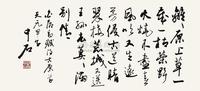 離原上草一
歲一枯榮野
火燒不盡春
風吹又生遠
芳侵古道晴
翠接荒城又送
王孫去萋滿
別情
中石